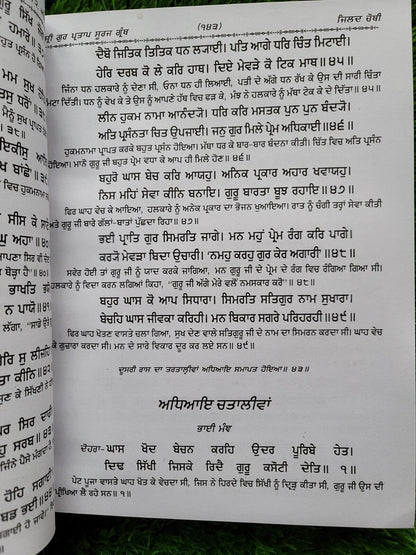 ਸ੍ਰੀ ਗੁਰ ਪ੍ਰਤਾਪ ਸੂਰਜ ਗ੍ਰੰਥ (੧੪੩) ਜਿਲਦ ਚੌਥੀ
ਦੈਬੇ ਜਿਤਿਕ ਤਿਤਿਕ ਧਨ ਲ੍ਯਾਈ। ਪਤਿ ਆਗੇ ਧਰਿ ਚਿੰਤ ਮਿਟਾਈ।
ਹੇਰਿ ਦਰਬ ਕੋ ਲੇ ਕਰਿ ਹਾਥ। ਦਿਏ ਮੇਵੜੇ ਕੋ ਟਿਕ ਮਾਥ॥੪੫॥
ਜਿੰਨਾ ਧਨ ਹਲਕਾਰੇ ਨੂੰ ਦੇਣਾ ਸੀ, ਓਨਾ ਧਨ ਹੀ ਲਿਆਈ, ਪਤੀ ਦੇ ਅੱਗੇ ਧਨ ਰੱਖ ਕੇ ਉਸ ਦੀ ਸਾਰੀ ਚਿੰਤਾ
ਮਿਟਾ ਦਿੱਤੀ। ਧਨ ਨੂੰ ਵੇਖ ਕੇ ਤੇ ਉਸ ਨੂੰ ਆਪਣੇ ਹੱਥ ਵਿਚ ਫੜ ਕੇ, ਮੰਝ ਨੇ ਹਲਕਾਰੇ ਨੂੰ ਮੱਥਾ ਟੇਕ ਕੇ ਦੇ ਦਿੱਤਾ॥੪੫॥
ਲੀਨ ਹੁਕਮ ਨਾਮਾ ਆਨੰਦਯੋ। ਧਰਿ ਕਰਿ ਮਸਤਕ ਪੁਨ ਪੁਨ ਬੰਦਯੋ।
ਅਤਿ ਪ੍ਰਸੰਨਤਾ ਚਿਤ ਉਪਜਾਈ। ਜਨੁ ਗੁਰ ਮਿਲੇ ਪ੍ਰੇਮ ਅਧਿਕਾਈ॥੪੬॥
ਹੁਕਮਨਾਮਾ ਪ੍ਰਾਪਤ ਕਰਕੇ ਬਹੁਤ ਪ੍ਰਸੰਨ ਹੋਇਆ। ਮੱਥਾ ਧਰ ਕੇ ਬਾਰ-ਬਾਰ ਬੰਦਨਾ ਕੀਤੀ। ਚਿੱਤ ਵਿਚ ਅਤਿ ਪ੍ਰਸੰਨ
ਹੋਇਆ। ਮਾਨੋ ਗੁਰੂ ਜੀ ਬਹੁਤ ਪ੍ਰੇਮ ਵਧਾ ਕੇ ਆਪ ਹੀ ਮਿਲੇ ਹੋਣ॥੪੬॥
ਬਹੁਰੋ ਘਾਸ ਬੇਚ ਕਰਿ ਆਯਹੁ। ਅਨਿਕ ਪ੍ਰਕਾਰ ਅਹਾਰ ਖਵਾਯਹੁ।
ਨਿਸ ਮਹਿਂ ਸੇਵਾ ਕੀਨਿ ਬਨਾਇ। ਗੁਰੂ ਬਾਰਤਾ ਬੂਝ ਰਹਾਇ॥੪੭॥
ਫਿਰ ਘਾਹ ਵੇਚ ਕੇ ਆਇਆ, ਹਲਕਾਰੇ ਨੂੰ ਅਨੇਕ ਪ੍ਰਕਾਰ ਦਾ ਭੋਜਨ ਖੁਆਇਆ। ਰਾਤ ਨੂੰ ਚੰਗੀ ਤਰ੍ਹਾਂ ਸੇਵਾ ਕੀਤੀ
ਤੇ ਗੁਰੂ ਜੀ ਬਾਰੇ ਗੱਲਾਂ-ਬਾਤਾਂ ਪੁੱਛਦਾ ਰਿਹਾ॥੪੭॥
ਭਈ ਪ੍ਰਾਤਿ ਗੁਰ ਸਿਮਰਤਿ ਜਾਗੇ। ਮਨ ਮਹੁ ਪ੍ਰੇਮ ਰੰਗ ਕਰਿ ਪਾਗੇ।
ਕਰਤੋ ਮੇਵੜਾ ਬਿਦਾ ਉਚਾਰੀ। 'ਨਮਹੁ ਕਰਹੁ ਗੁਰ ਕੇਰ ਅਗਾਰੀ'॥੪੮॥
ਸਵੇਰ ਹੋਈ ਤਾਂ ਗੁਰੂ ਜੀ ਨੂੰ ਯਾਦ ਕਰਕੇ ਜਾਗਿਆ, ਮਨ ਗੁਰੂ ਜੀ ਦੇ ਪ੍ਰੇਮ ਦੇ ਰੰਗ ਵਿਚ ਰੰਗਿਆ ਗਿਆ ਸੀ।
ਹਲਕਾਰੇ ਨੂੰ ਵਿਦਾ ਕਰਨ ਲੱਗਿਆਂ ਕਿਹਾ, "ਗੁਰੂ ਜੀ ਅੱਗੇ ਮੇਰੇ ਵਲੋਂ ਨਮਸਕਾਰ ਕਰੋ"॥੪੮॥
ਬਹੁਰ ਘਾਸ ਕੋ ਆਪ ਸਿਧਾਰਾ। ਸਿਮਰਤਿ ਸਤਿਗੁਰ ਨਾਮ ਸੁਖਾਰਾ।
ਬੇਚਹਿ ਘਾਸ ਜੀਵਕਾ ਕਰਿਹੀ। ਮਨ ਬਿਕਾਰ ਸਗਰੇ ਪਰਿਹਰਹੀ॥੪੯॥
ਫਿਰ ਘਾਹ ਖੋਤਣ ਵਾਸਤੇ ਚਲਾ ਗਿਆ, ਸੁਖ ਦੇਣ ਵਾਲੇ ਸਤਿਗੁਰੂ ਜੀ ਦੇ ਨਾਮ ਦਾ ਸਿਮਰਨ ਕਰਦਾ ਸੀ। ਘਾਹ ਵੇਚ
ਕੇ ਗੁਜ਼ਾਰਾ ਕਰਦਾ ਸੀ। ਮਨ ਦੇ ਸਾਰੇ ਵਿਕਾਰ ਦੂਰ ਕਰ ਲਏ ਸਨ॥੪੯॥
ਦੂਸਰੀ ਰਾਸ ਦਾ ਤਰਤਾਲੀਵਾਂ ਅਧਿਆਇ ਸਮਾਪਤ ਹੋਇਆ॥੪੩॥
ਅਧਿਆਇ ਚਤਾਲੀਵਾਂ
ਭਾਈ ਮੰਝ
ਦੋਹਰਾ- ਘਾਸ ਖੋਦ ਬੇਚਨ ਕਰਹਿ ਉਦਰ ਪੂਰਿਬੇ ਹੇਤ।
ਦਿਢ ਸਿੱਖੀ ਜਿਸਕੇ ਰਿਦੈ ਗੁਰੂ ਕਸੌਟੀ ਦੇਤਿ॥੧॥
ਪੇਟ ਪੂਜਾ ਵਾਸਤੇ ਘਾਹ ਖੋਤ ਕੇ ਵੇਚਦਾ ਸੀ, ਜਿਸ ਨੇ ਹਿਰਦੇ ਵਿਚ ਸਿੱਖੀ ਨੂੰ ਦ੍ਰਿੜ੍ਹ ਕੀਤਾ ਸੀ, ਗੁਰੂ ਜੀ ਉਸ ਦੀ
ਪ੍ਰੀਖਿਆ ਲੈ ਰਹੇ ਸਨ॥੧॥